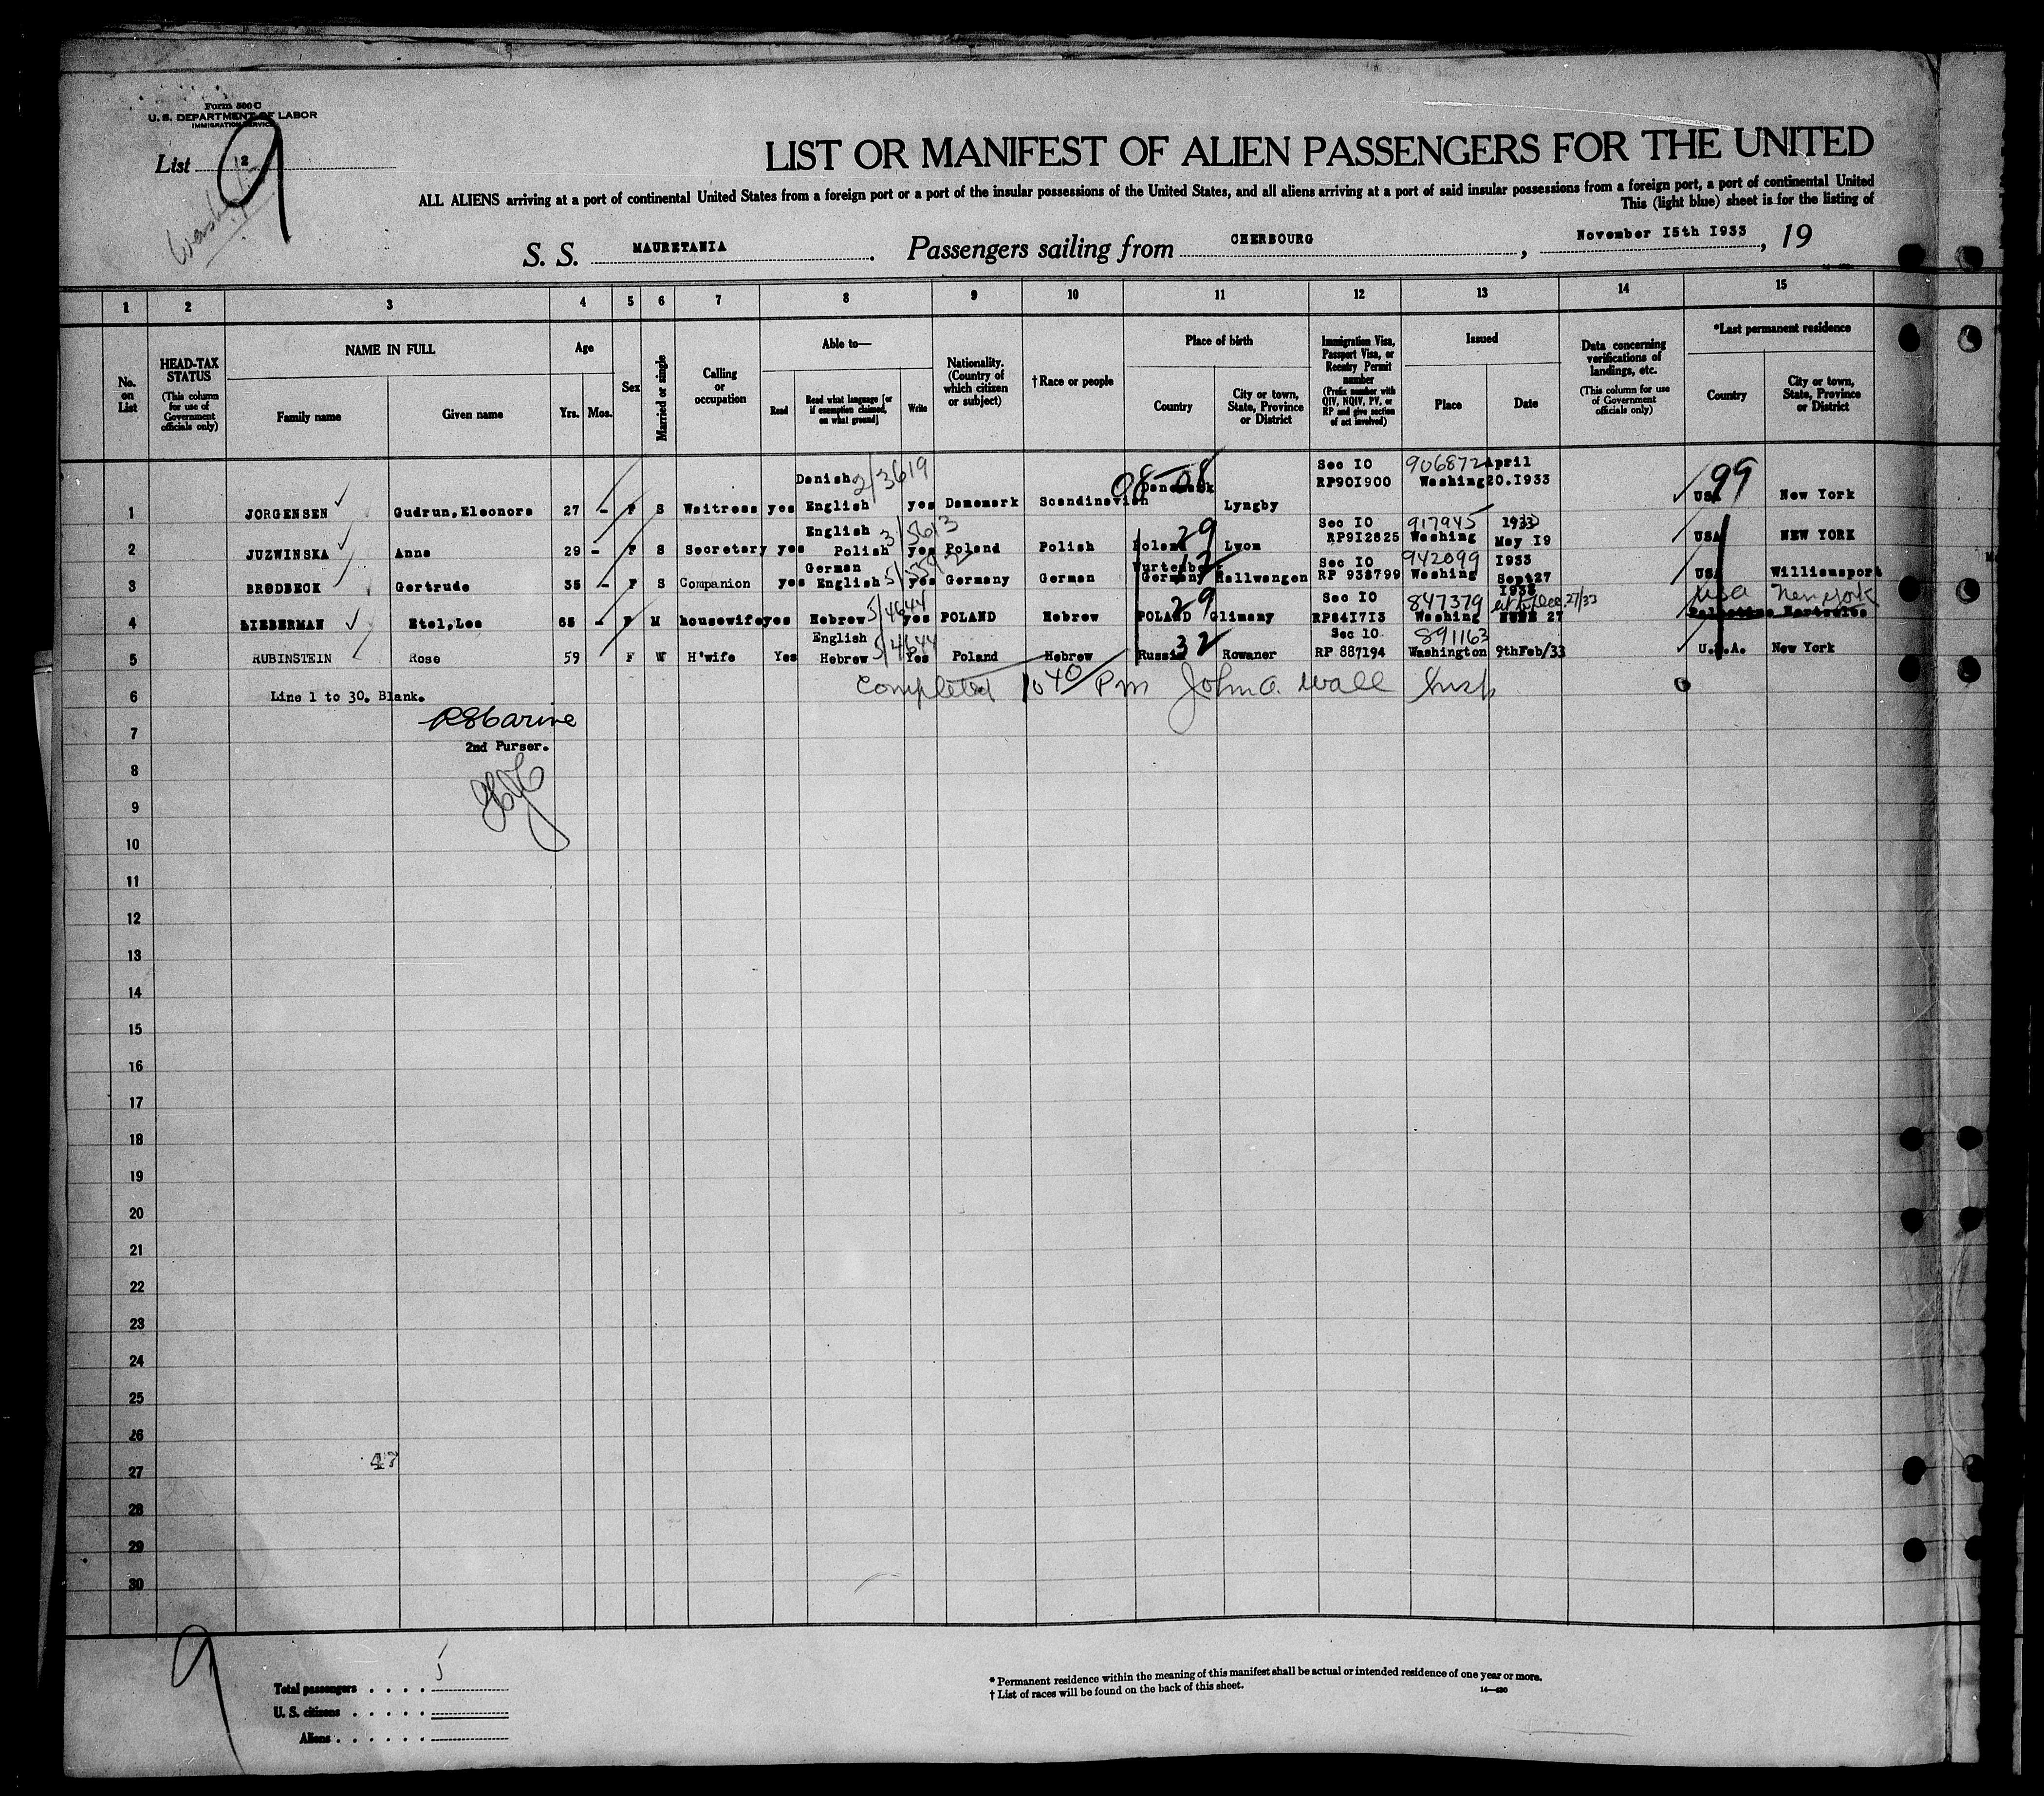 Form 500 C
U. S. DEPARTMENT OF LABOR
IMMIGRATION SERVICE
List 12
9
LIST OR MANIFEST OF ALIEN PASSENGERS FOR THE UNITED
ALL ALIENS arriving at a port of continental United States from a foreign port or a port of the insular possessions of the United States, and all aliens arriving at a port of said insular possessions from a foreign port, a port of continental United
This (light blue) sheet is for the listing of
S. S. MAURETANIA. Passengers sailing from CHERBOURG, November 15th 1933, 19
1 2 3 4 5 6 7 8 9 10 11 12 13 14 15
No. on List
HEAD-TAX STATUS (This column for use of Government officials only)
NAME IN FULL
Family name
Given name
Age
Yrs.
Mos.
Sex
Married or single
Calling or occupation
Able to—
Read
Read what language [or if exemption claimed, on what ground]
Write
Nationality. (Country of which citizen or subject)
† Race or people
Place of birth
Country
City or town, State, Province or District
Immigration Visa, Passport Visa, or Reentry Permit number (Prefix number with QIV, NQIV, PV, or RP and give section of act involved)
Issued
Place
Date
Data concerning verifications of landings, etc. (This column for use of Government officials only)
*Last permanent residence
Country
City or town, State, Province or District
1 JORGENSEN Gudrun,Eleonora 27 - F S Waitress yes Danish English 2/3619 yes Denemark Scandinavian 08-08 Lyngby Sec IO RP90I900 906872 Washing April 20.I933 USA 99 New York
2 JUZWINSKA Anna 29 - F S Secretary yes English Polish 3/5613 yes Poland Polish Poland 29 Lwom Sec IO RP9I2825 917945 Washing 1933 May I9 USA NEW YORK
3 BRODBECK Gertrude 35 - F S Companion yes German English yes Germany German Wurtenber Germany Hallwangen Sec IO RP 938799 942099 Washing I933 Sept27 USA Williamsport
4 LIEBERMAN Etel,Lea 65 - F M housewife yes Hebrew 5/4644 yes POLAND Hebrew POLAND 29 Glimany Sec IO RP84I7I3 847379 Washing 1933 27 USA New York
5 RUBINSTEIN Rose 59 F W H'wife Yes English Hebrew 5/4644 Yes Poland Hebrew Russia 32 Rowaner Sec 10. RP 887194 891163 Washington 9thFeb/33 U.S.A. New York
6 Line 1 to 30. Blank. Completed 1040 Pm John A. Wall Insp
7
2nd Purser.
8
9
10
11
12
13
14
15
16
17
18
19
20
21
22
23
24
25
26
47
27
28
29
30
9
Total passengers . . . . 5
U. S. citizens . . . . .
Aliens . . . . . .
* Permanent residence within the meaning of this manifest shall be actual or intended residence of one year or more.
† List of races will be found on the back of this sheet.
14—430